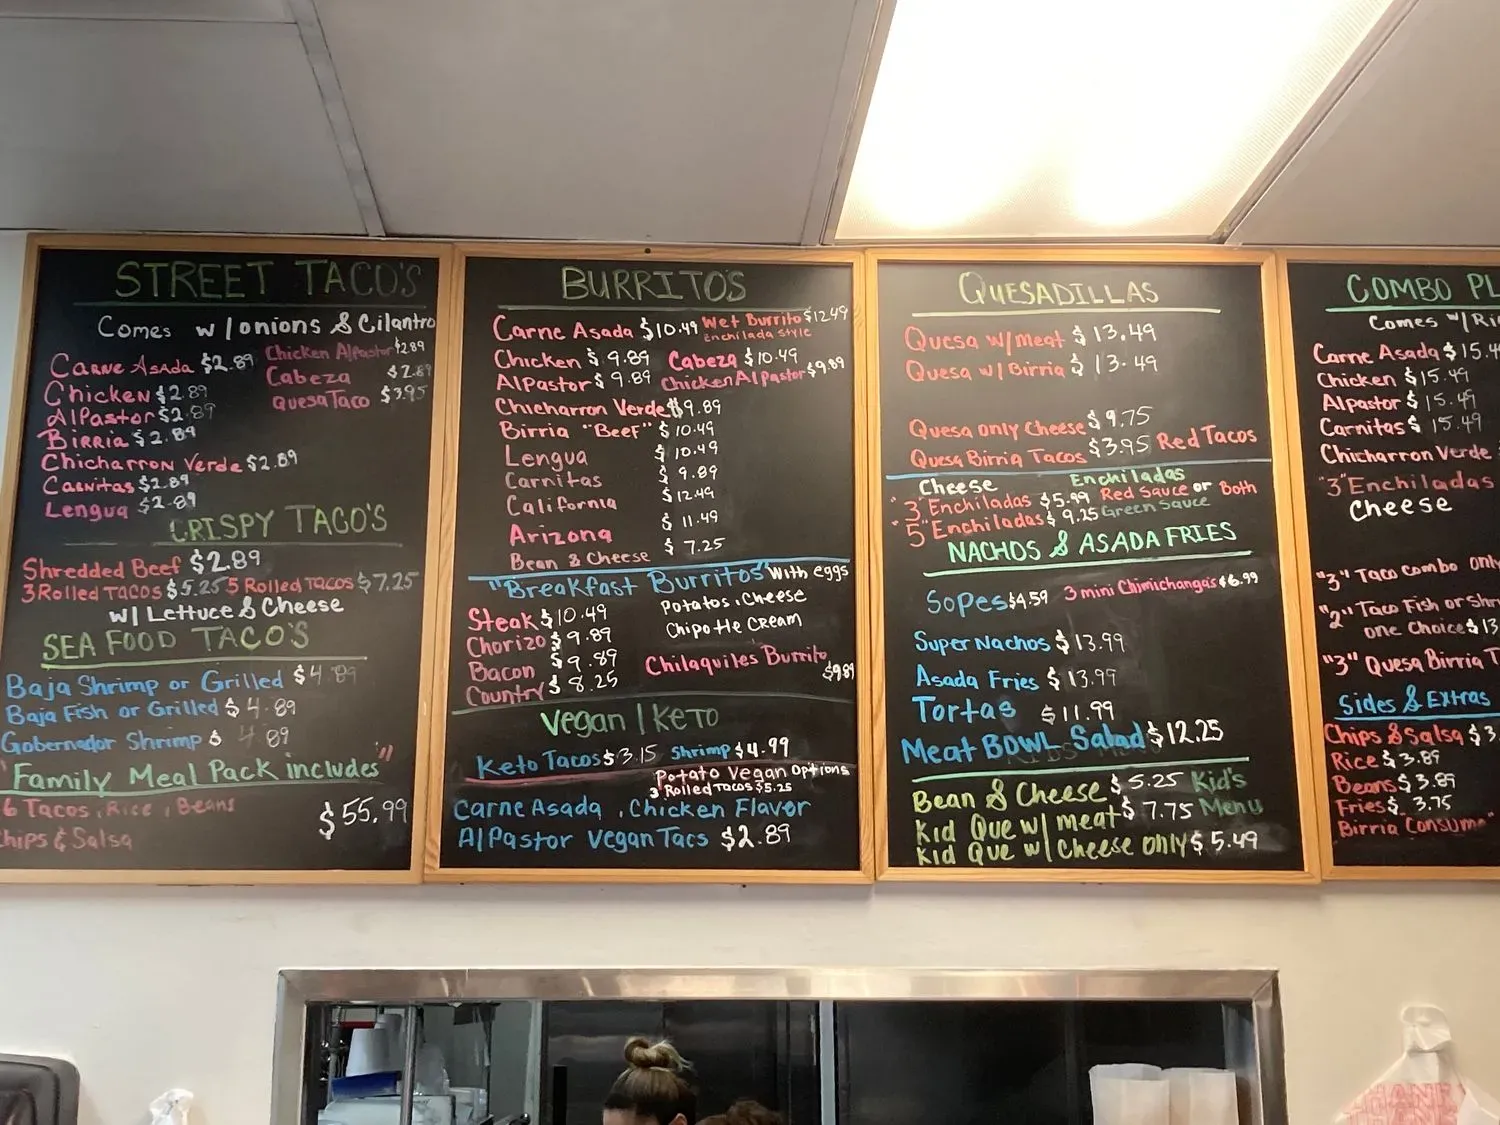 STREET TACO'S
Comes w/onions & Cilantro
Carne Asada $2.89
Chicken $2.89
AlPastor $2.89
Birria $2.89
Chicharron Verde $2.89
Carnitas $2.89
Lengua $2.89
Chicken Alpastor $2.89
Cabeza $2.89
QuesaTaco $3.95
CRISPY TACO'S
Shredded Beef $2.89
3 Rolled Tacos $5.25 5 Rolled Tacos $7.25
w/ Lettuce & Cheese
SEA FOOD TACO'S
Baja Shrimp or Grilled $4.89
Baja Fish or Grilled $4.89
Gobernador Shrimp $4.89
"Family Meal Pack includes"
6 Tacos, Rice, Beans
Chips & Salsa
$55.99
BURRITO'S
Carne Asada $10.49 Wet Burrito $12.49
Enchilada Style
Chicken $9.89 Cabeza $10.49
AlPastor $9.89 Chicken Al Pastor $9.89
Chicharron Verde $9.89
Birria "Beef" $10.49
Lengua $10.49
Carnitas $9.89
California $12.49
Arizona $11.49
Bean & Cheese $7.25
"Breakfast Burritos" With eggs
Potatos, Cheese
Chipotle Cream
Steak $10.49
Chorizo $9.89
Bacon $9.89
Country $8.25
Chilaquiles Burrito
$9.89
Vegan | Keto
Keto Tacos $3.15 Shrimp $4.99
Potato Vegan Options
3 Rolled Tacos $5.25
Carne Asada, Chicken Flavor
AlPastor Vegan Tacs $2.89
QUESADILLAS
Quesa w/meat $13.49
Quesa w/Birria $13.49
Quesa only Cheese $9.75
Quesa Birria Tacos $3.95 Red Tacos
Cheese Enchiladas
"3" Enchiladas $5.99 Red Sauce or Both
"5" Enchiladas $9.25 Green Sauce
NACHOS & ASADA FRIES
Sopes $4.59 3 mini Chimichangas $6.99
Super Nachos $13.99
Asada Fries $13.99
Tortas $11.99
Meat BOWL Salad $12.25
Bean & Cheese $5.25 Kid's
Kid Que w/meat $7.75 Menu
Kid Que w/Cheese only $5.49
COMBO PL
Comes w/Ri
Carne Asada $15.4
Chicken $15.49
Alpastor $15.49
Carnitas $15.49
Chicharron Verde
"3" Enchiladas
Cheese
"3" Taco Combo only
"2" Taco Fish or Shr
one Choice $13
"3" Quesa Birria T
Sides & Extras
Chips & Salsa $3.
Rice $3.89
Beans $3.89
Fries $3.75
Birria "Consume"